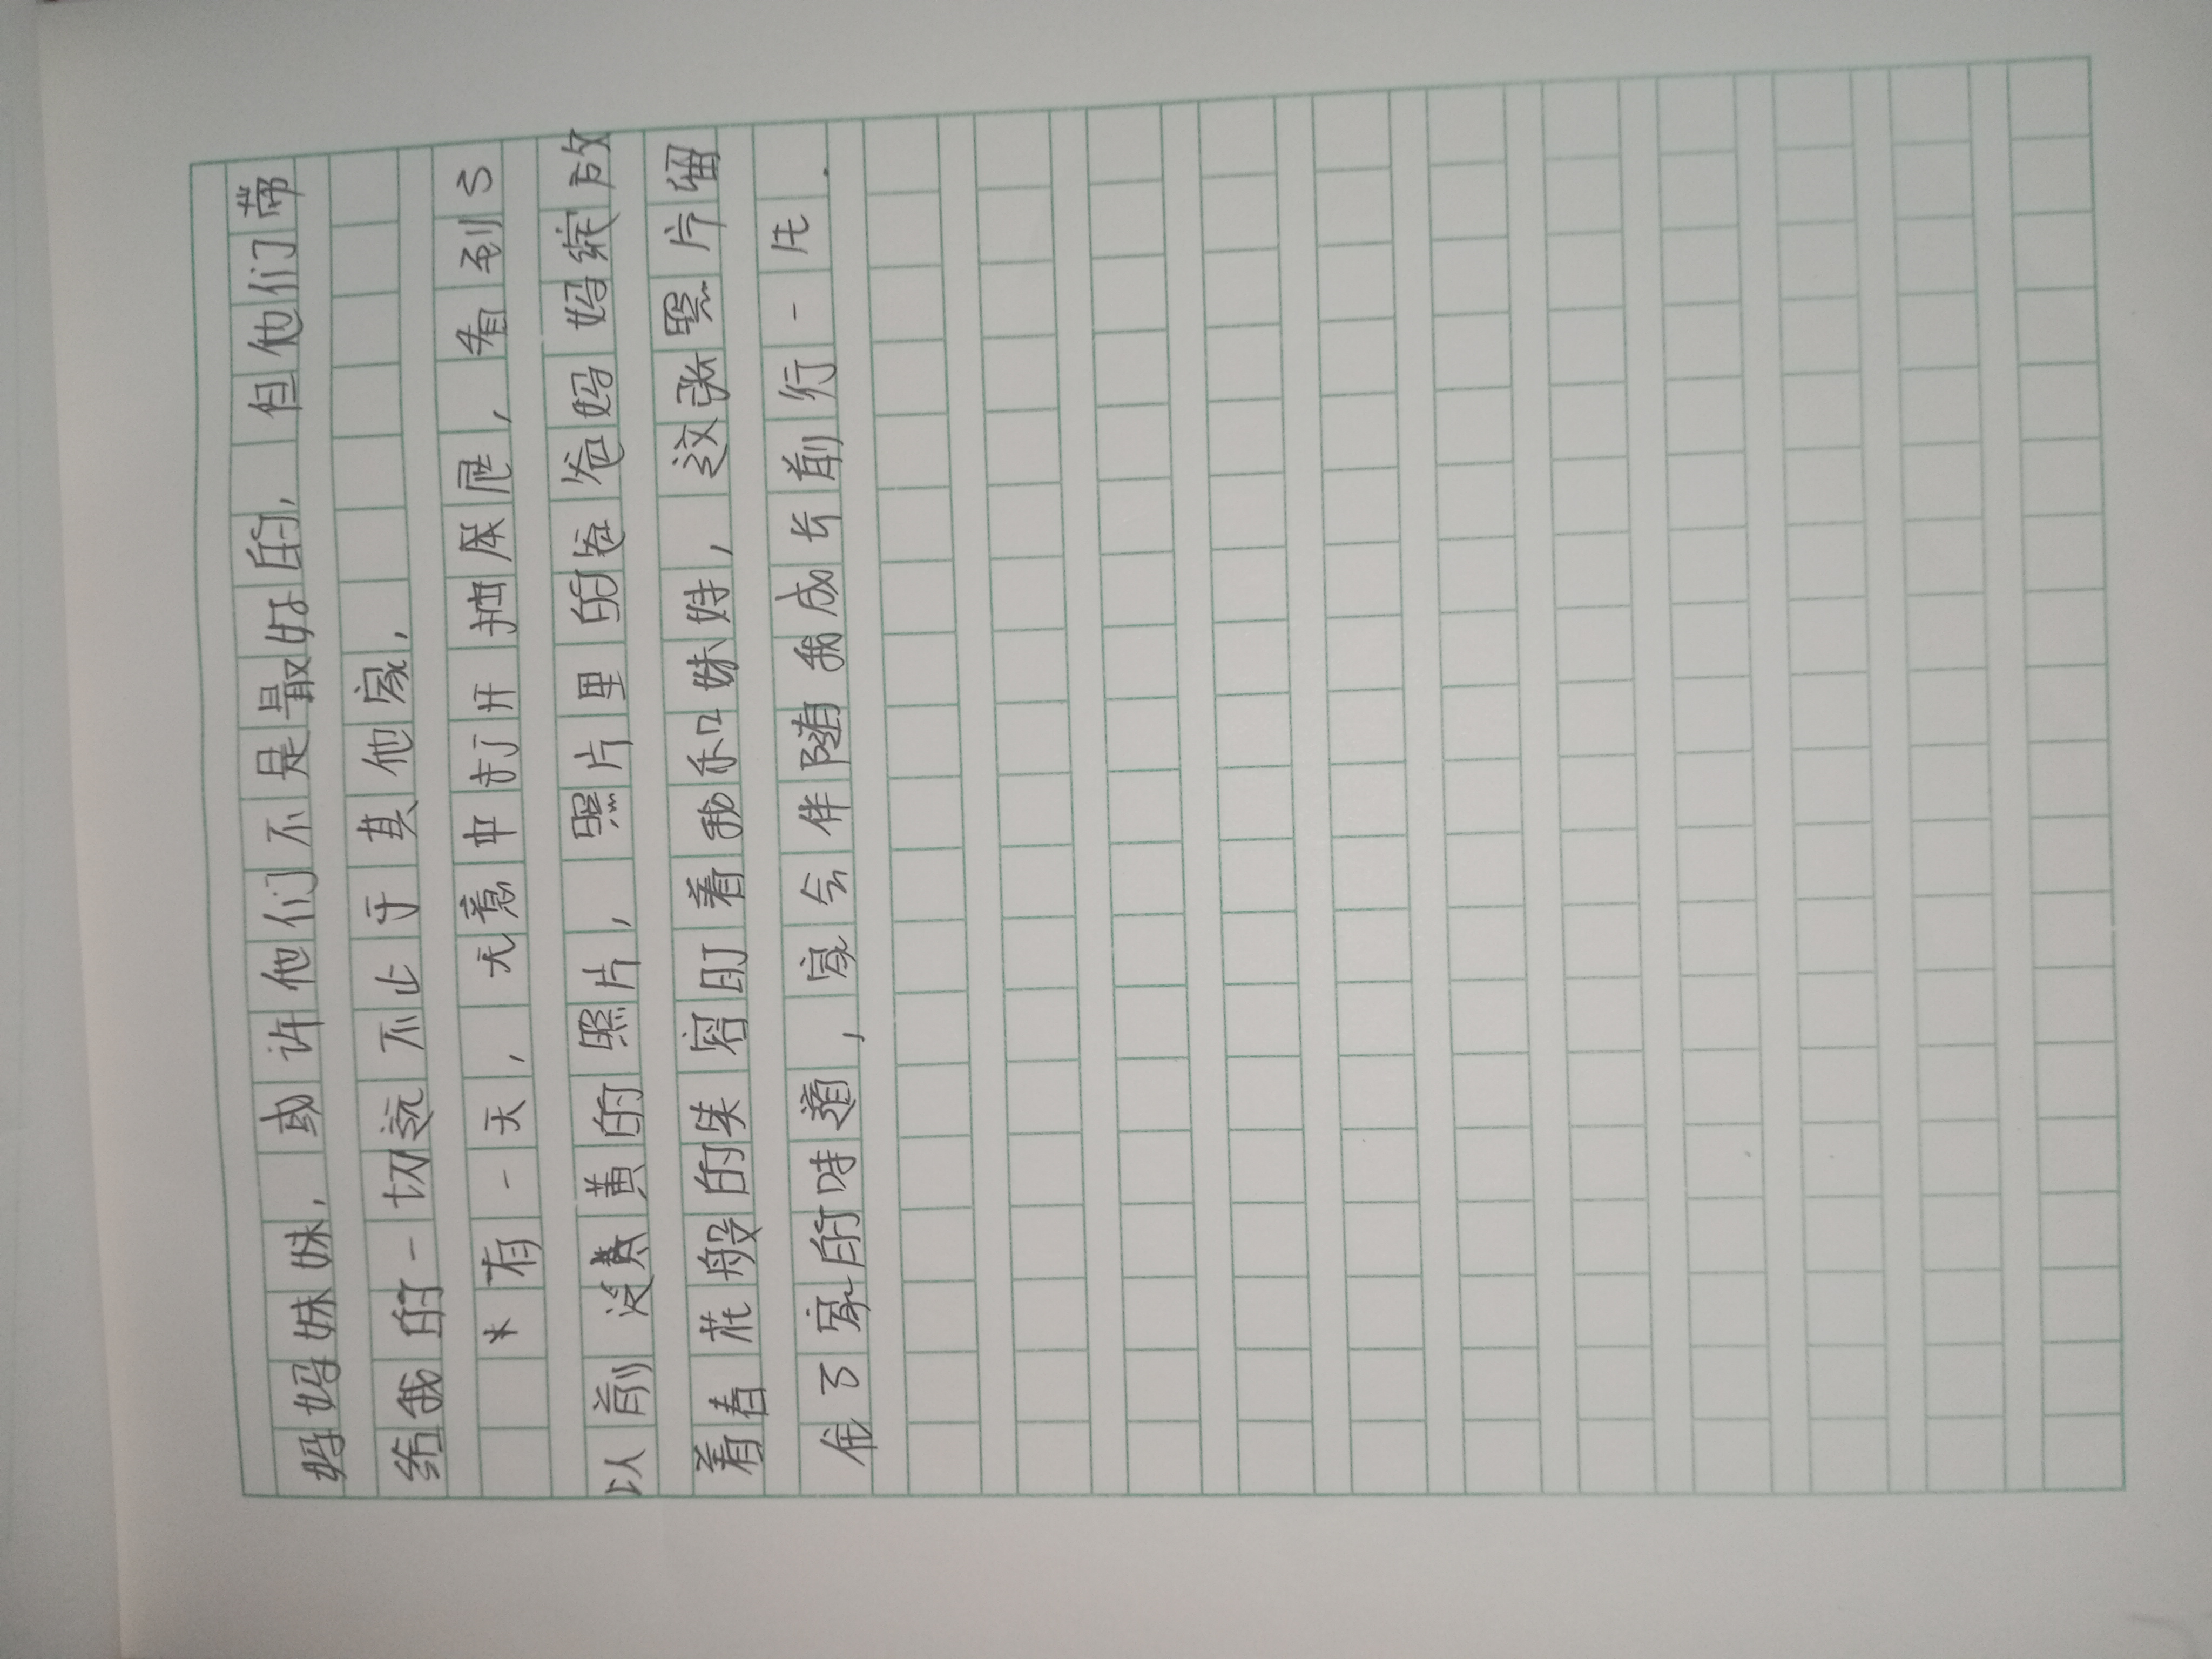 妈妈妹妹，或许他们不是最好的，但他们带
给我的一切远不止于其他家，
*有一天，无意中打开抽屉，看到了
以前泛黄的照片，照片里的爸爸妈妈绽放
着春花般的笑容盯着我和妹妹，这张照片留
住了家的味道，家会伴随我成长前行一生.